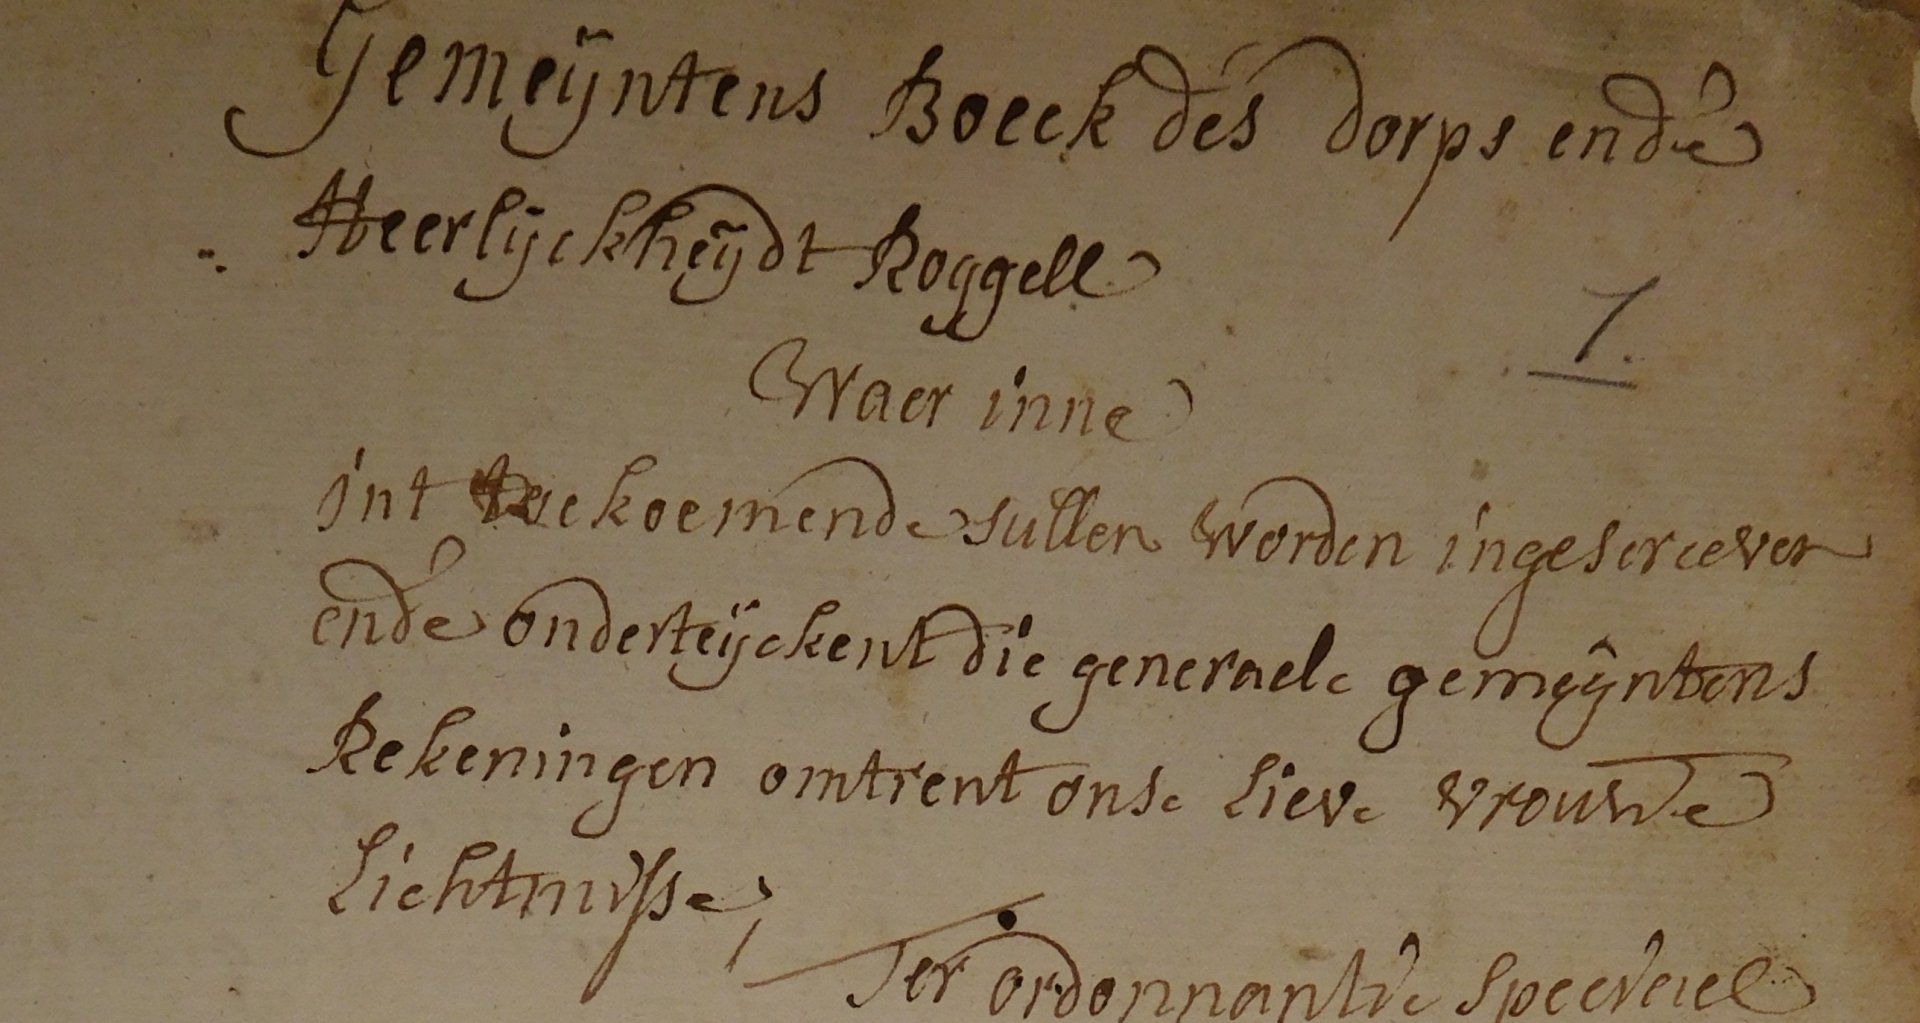 Gemeÿntens Boeck des dorps ende
Heerlijckheÿdt Roggell
1.
Waer inne
Int toekoemende sullen worden ingescreeven
ende onderteÿckent die generaele gemeÿntens
Rekeningen omtrent onse Lieve vrouwe
Lichtmisse,
Ter ordonnantie speciael